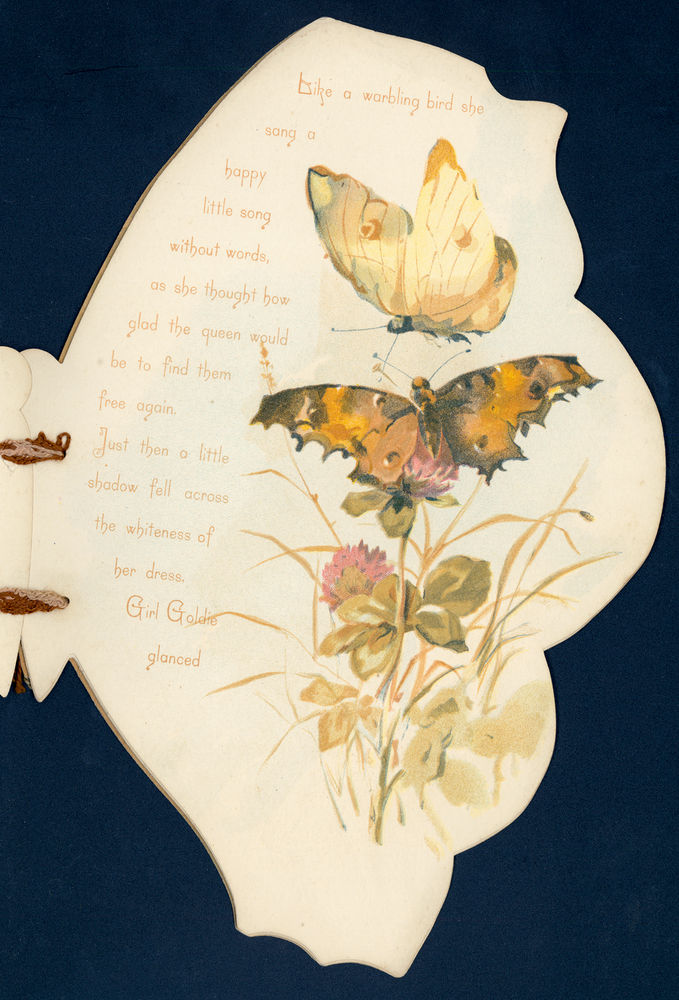 Like a warbling bird she
sang a
happy
little song
without words,
as she thought how
glad the queen would
be to find them
free again.
Just then a little
shadow fell across
the whiteness of
her dress.
Girl Goldie
glanced